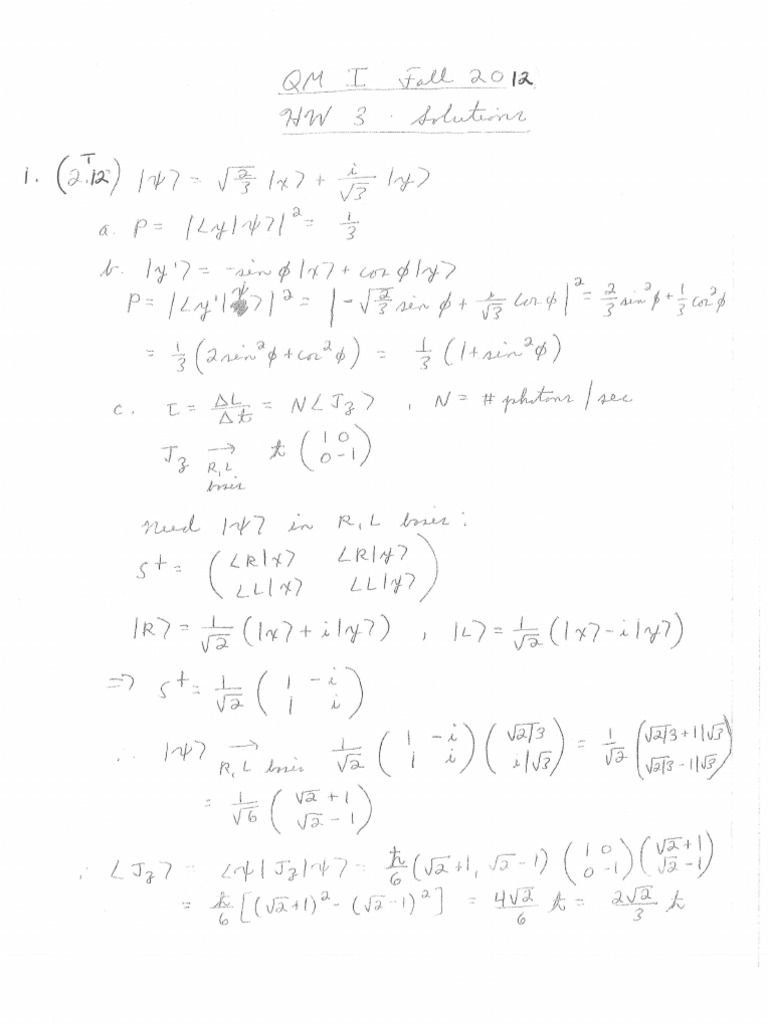 QM I Fall 2012
HW 3 . Solutions
1. (2.12) |ψ> = √2/3 |x> + i/√3 |y>
a. P = |<y|ψ>|² = 1/3
b. |y'> = -sin φ|x> + cos φ|y>
P = |<y'|ψ>|² = |-√2/3 sin φ + i/√3 cos φ|² = 2/3 sin²φ + 1/3 cos²φ
= 1/3 (2 sin²φ + cos²φ) = 1/3 (1 + sin²φ)
c. τ = ΔL/Δt = N<J_z> , N = # photons / sec
J_z → R,L basis ħ (1 0; 0 -1)
Need |ψ> in R, L basis :
S† = (<R|x> <R|y>; <L|x> <L|y>)
|R> = 1/√2 (|x> + i|y>) , |L> = 1/√2 (|x> - i|y>)
⇒ S† = 1/√2 (1 -i; 1 i)
∴ |ψ> → R, L basis 1/√2 (1 -i; 1 i) (√2/3; i/√3) = 1/√2 (√2/3 + 1/√3; √2/3 - 1/√3)
= 1/√6 (√2 + 1; √2 - 1)
∴ <J_z> = <ψ|J_z|ψ> = ħ/6 (√2+1, √2-1) (1 0; 0 -1) (√2+1; √2-1)
= ħ/6 [(√2+1)² - (√2-1)²] = 4√2/6 ħ = 2√2/3 ħ